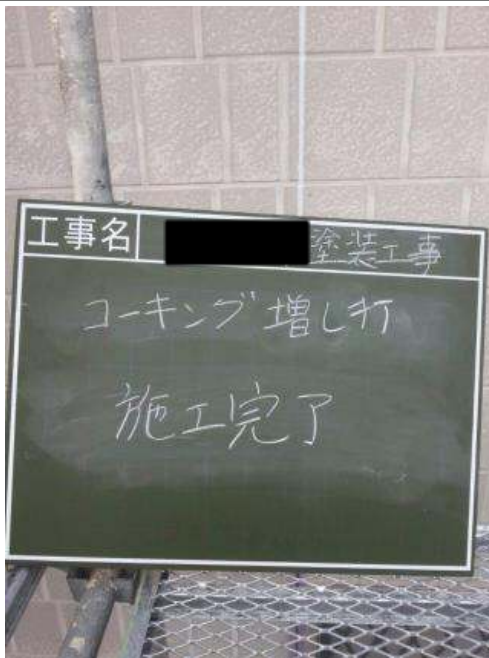 工事名 塗装工事
コーキング増し打
施工完了